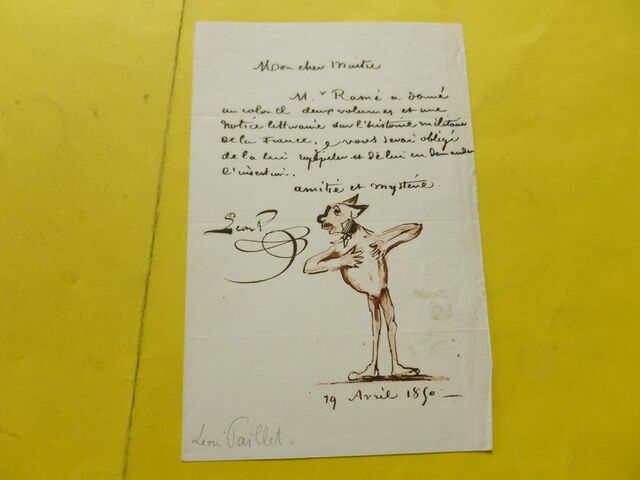 Mon cher Maitre
Mr Ramé a donné
au colonel deux volumes et une
notice littéraire sur l'histoire militaire
de la France. je vous serai obligé
de la lui rappeler et de lui en demander
l'insertion.
amitié et mystère
Leon P
19 Avril 1850
Leon Paillet.